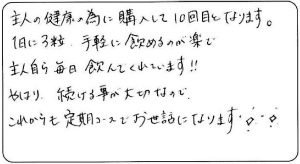 主人の健康の為に購入して10回目となります。
1日に3粒、手軽に飲めるのが楽で
主人自ら毎日飲んでくれています!!
やはり、続ける事が大切なので
これからも定期コースでお世話になります